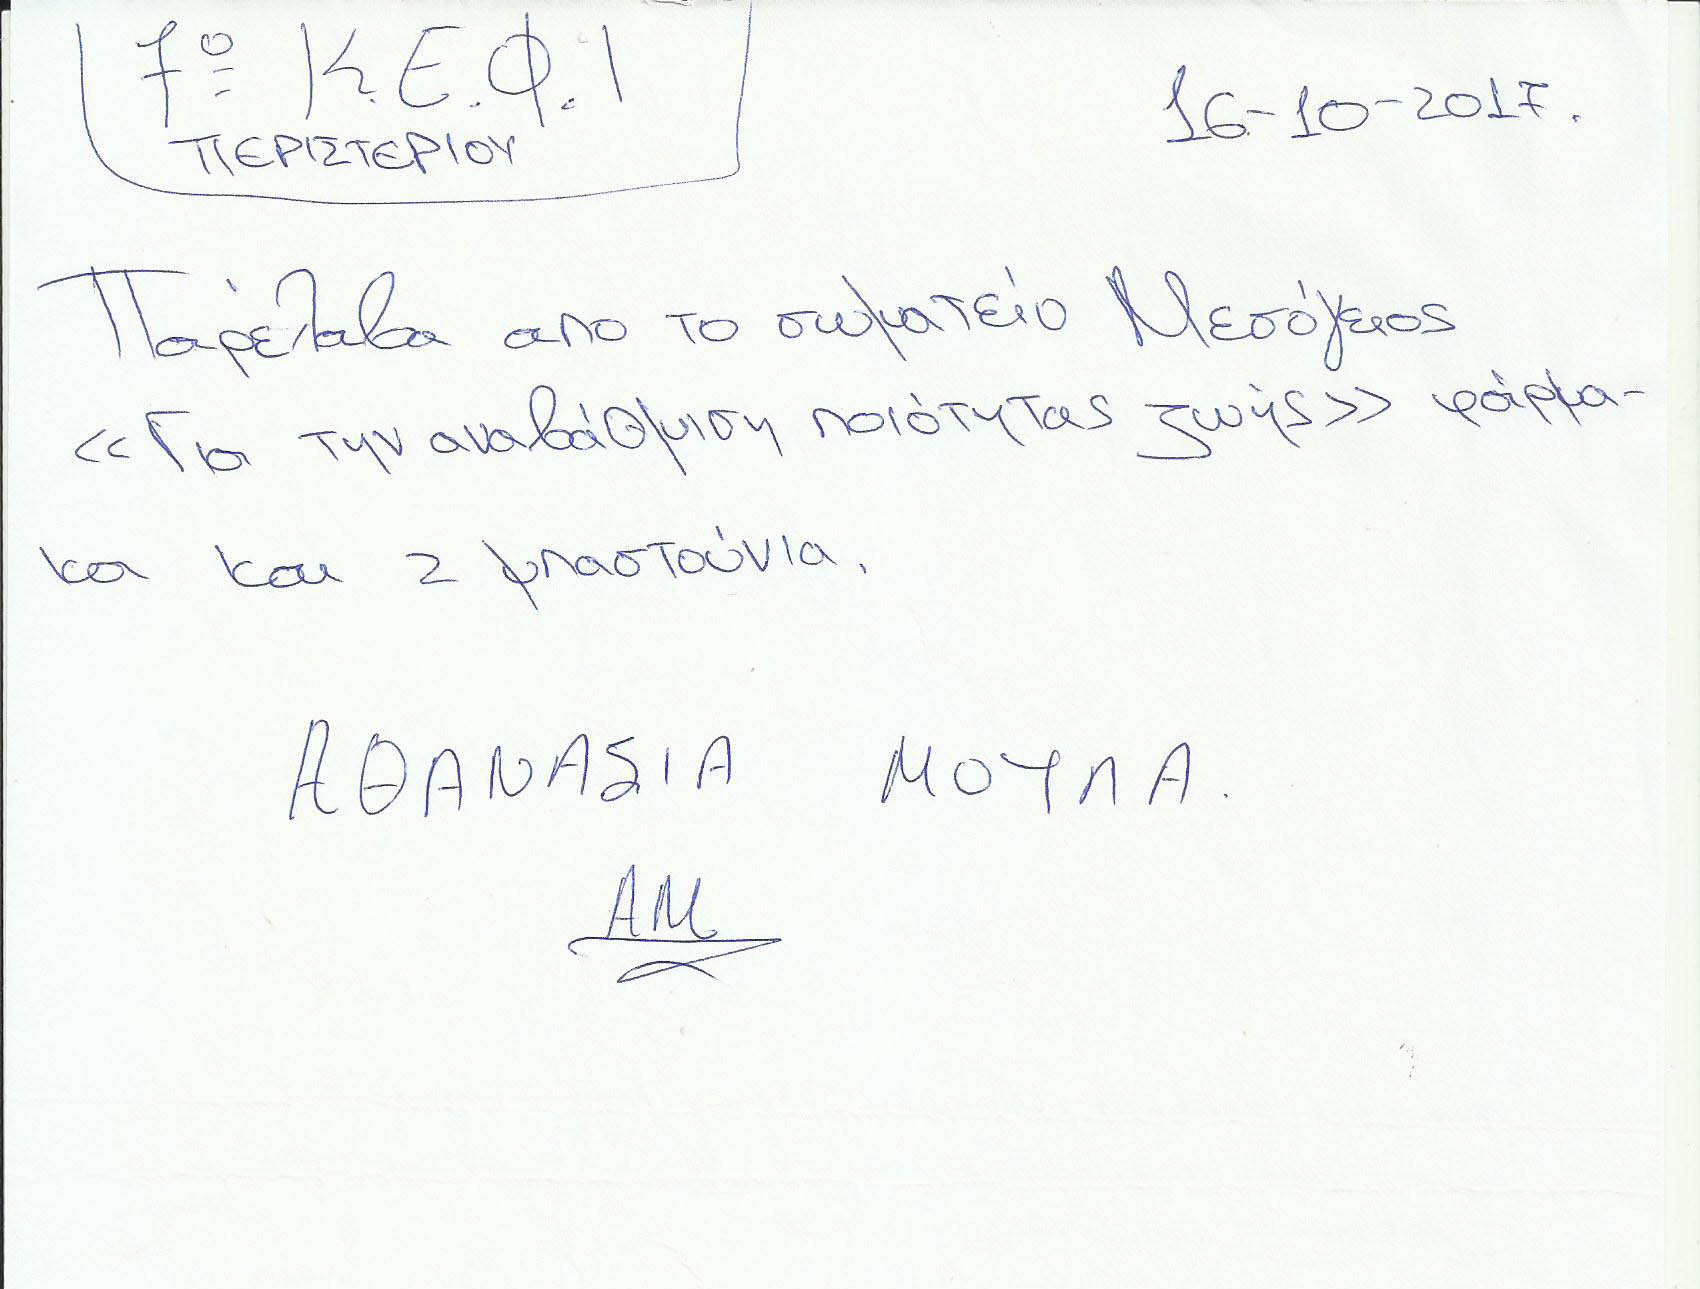 7º Κ.Ε.Φ.Ι
ΠΕΡΙΣΤΕΡΙΟΥ
16-10-2017.
Παρέλαβα απο το σωματείο Μεσόγειος
«Για την αναβάθμιση ποιότητας ζωής» φάρμα-
κα και 2 μπαστούνια.
ΑΘΑΝΑΣΙΑ ΜΟΥΛΑ.
ΑΜ